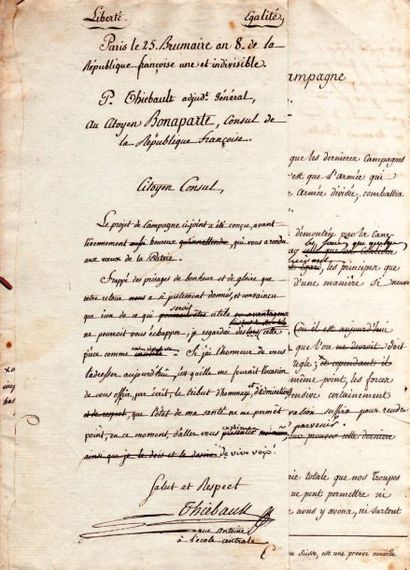 Liberté. Egalité.
Paris le 25. Brumaire an 8. de la
République françoise une et indivisible.
P. Thiébault adjudt. général,
Au Citoyen Bonaparte, Consul de
la République françoise.
Citoyen Consul,
Le projet de Campagne cijoint a été conçu, avant
l'évennement heureux qui vous a rendu
aux vœux de la Patrie.
Frappé des présages de bonheur et de gloire que
votre retour a si justement donnés, et convaincu
que rien de ce qui seroit utile
ne pourroit vous échapper, je regardai dès lors cette
pièce comme Si j'ai l'honneur de vous
l'adresser aujourd'hui, c'est qu'elle me fournit l'occasion
de vous offrir, par écrit, le tribut d'hommage et d'admiration
et de respect, que l'état de ma santé ne me permet
point, en ce moment, d'aller vous exprimer
ainsi que je le dois et le desire de vive voix.
Salut et Respect
Thiébault
rue Antoine
à l'école centrale
ampagne
que les dernieres Campagnes
c'est que l'armée qui
armée divisée, combattra
démontrée par la Cam
les principes que
d'une manière si neuve
où il est aujourd'hui
que l'on ne devroit
règle; cependant il
même point, les forces
offensive certainement
suffira pour rendre
parvenir
prouver cette derniere
totale que nos Troupes
ne peut permettre ni
nous y avons, ni surtout
en Suisse, est une preuve nouvelle